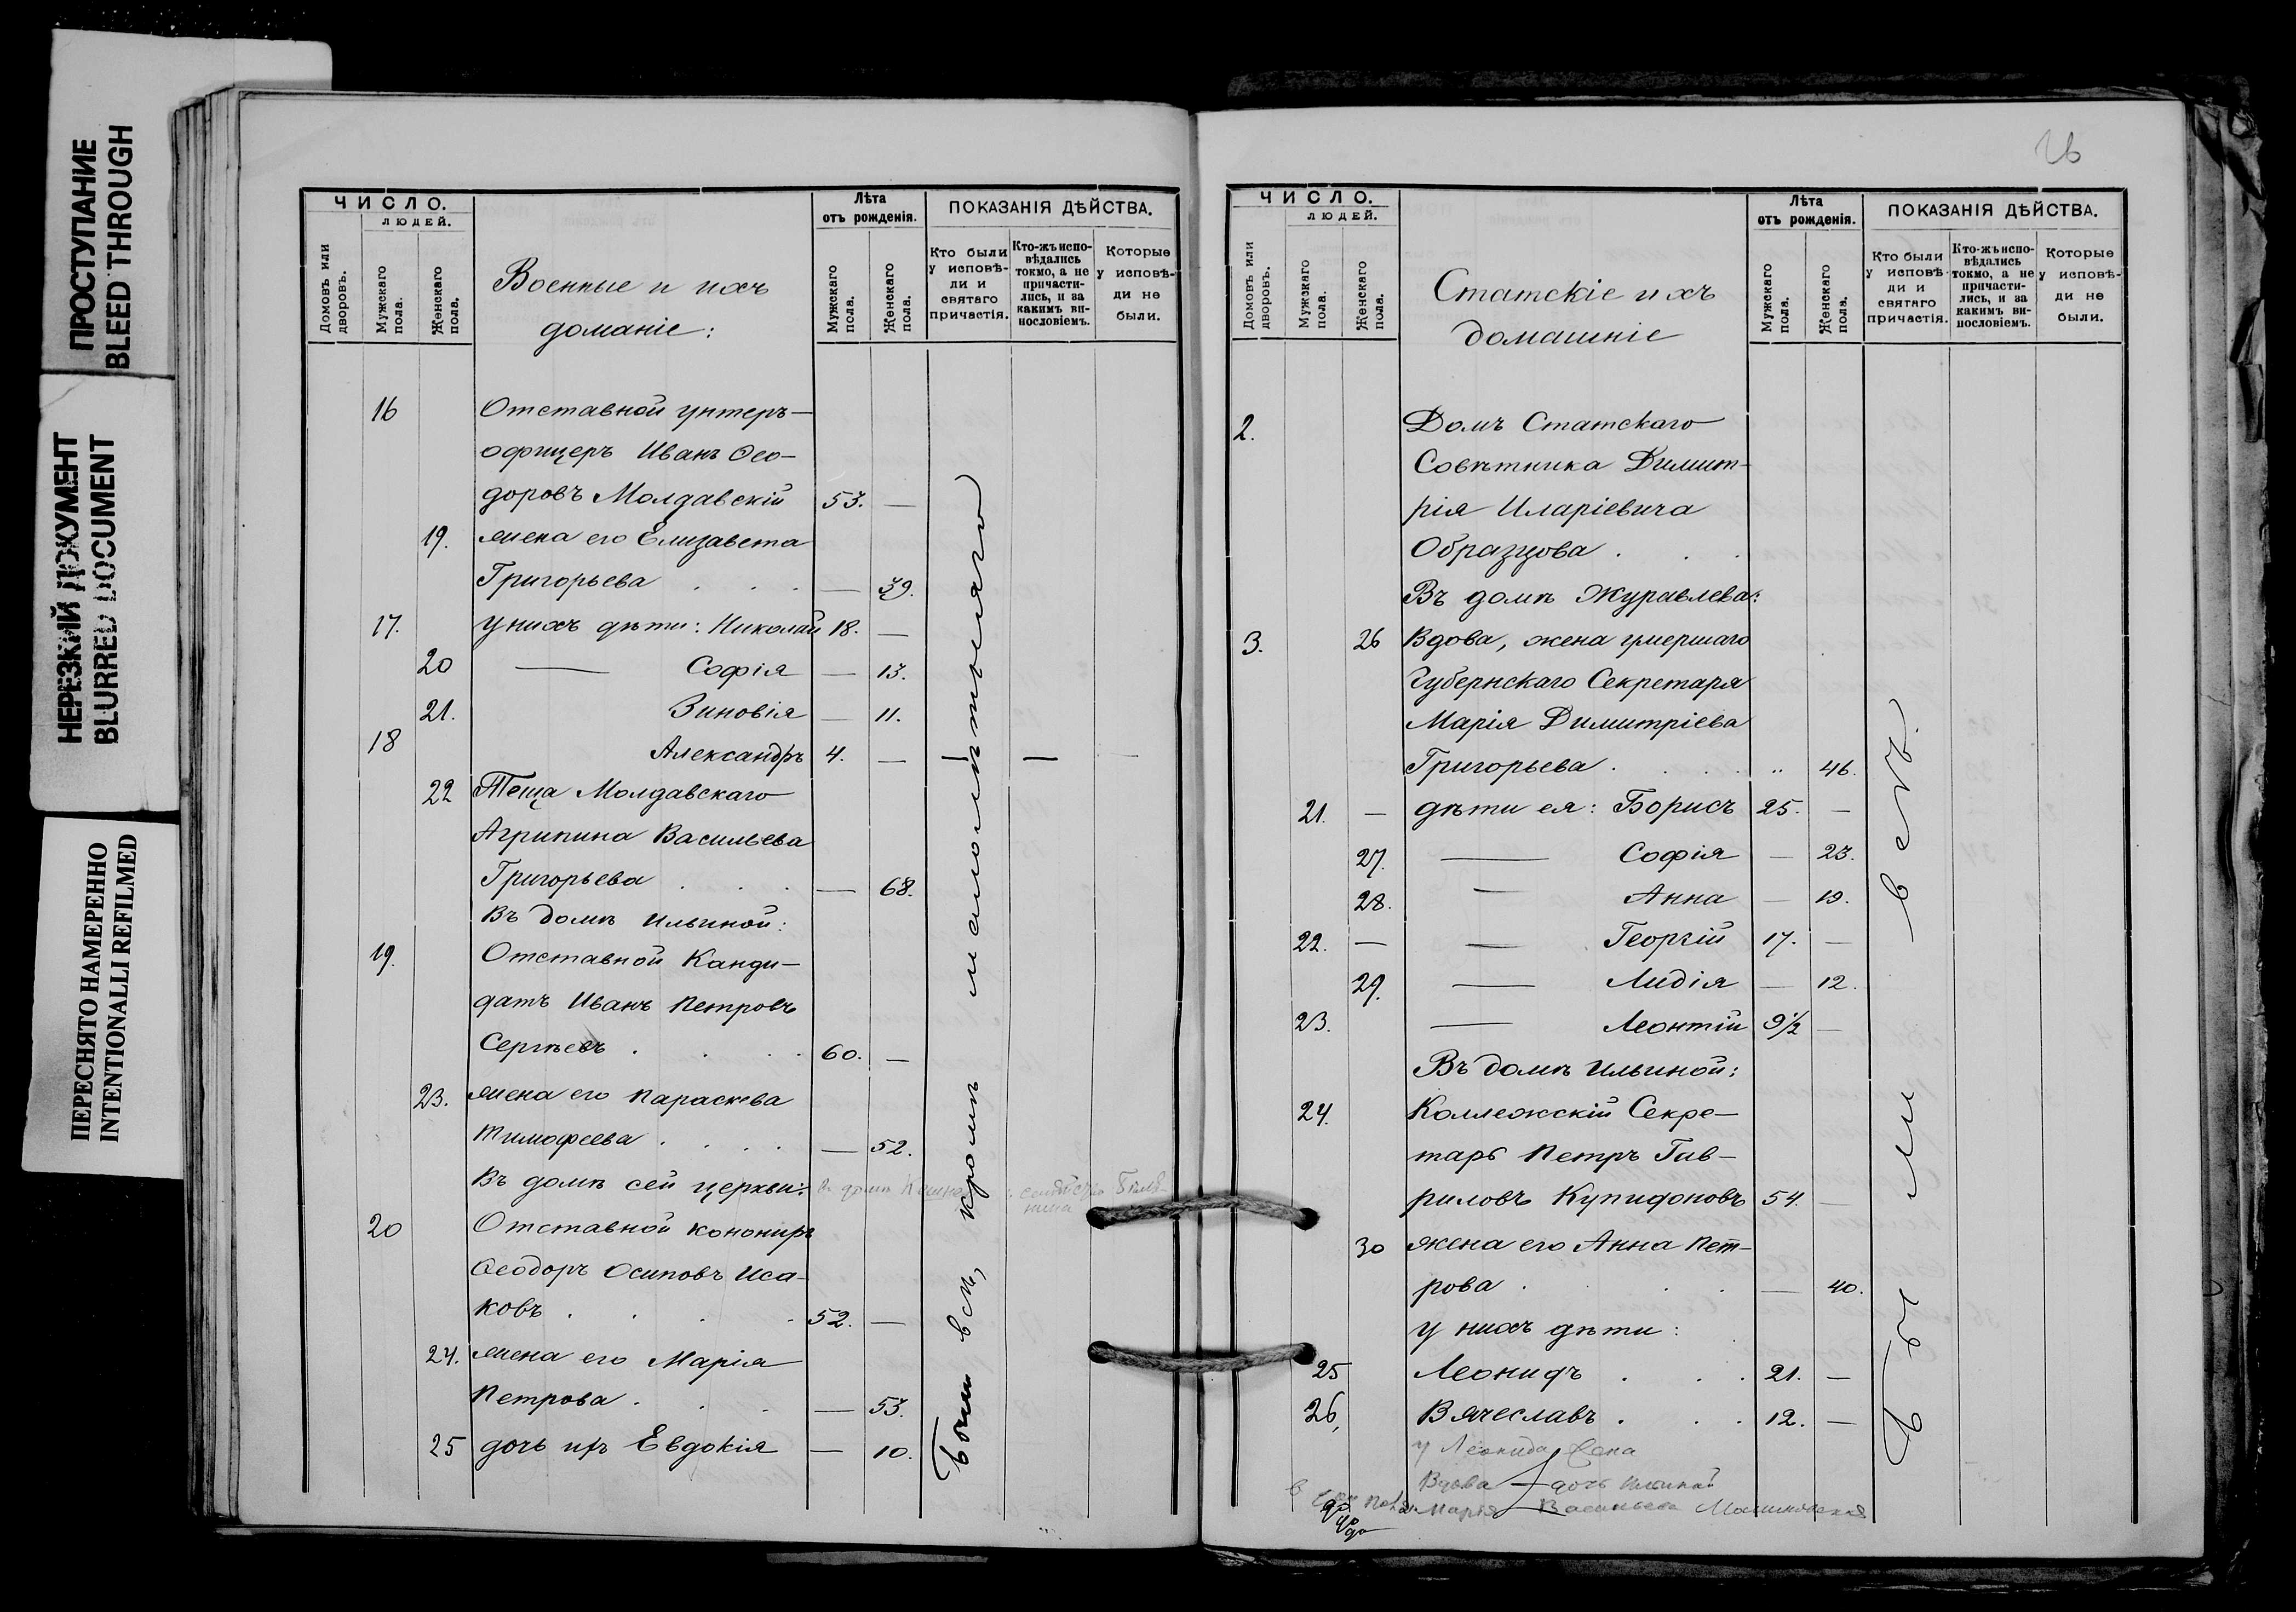 ПРОСТУПАНИЕ
BLEED THROUGH
НЕРЕЗКИЙ ДОКУМЕНТ
BLURRED DOCUMENT
ПЕРЕСНЯТО НАМЕРЕННО
INTENTIONALLI REFILMED
ЧИСЛО.
ЛЮДЕЙ.
Домовъ или дворовъ.
Мужскаго пола.
Женскаго пола.
Военные и ихъ
домашніе:
Лѣта
отъ рожденія.
Мужскаго пола.
Женскаго пола.
ПОКАЗАНІЯ ДѢЙСТВА.
Кто были у исповѣди и святаго причастія.
Кто-жъ исповѣдались токмо, а не причастились, и за какимъ винословіемъ.
Которые у исповѣди не были.
16 Отставной унтеръ-
офицеръ Иванъ Ѳео-
доровъ Молдавскій 53. —
19. жена его Елизавета
Григорьева . . . — 39.
17. у нихъ дѣти: Николай 18. —
20 — Софія — 13.
21. Зиновія — 11.
18 Александръ 4. —
22 Теща Молдавскаго
Агрипина Васильева
Григорьева . . . — 68.
Въ домѣ Ильиной:
19. Отставной Канди-
датъ Иванъ Петровъ
Сергѣевъ . . . 60. —
23. жена его Параскева
Тимофеева . . . — 52.
Въ домѣ сей церкви:
20 Отставной конониръ
Ѳеодоръ Осиповъ Иса-
ковъ . . . 52. —
24. жена его Марія
Петрова . . . — 53.
25 дочь ихъ Евдокія — 10.
Были всѣ, кромѣ малолѣтняго
26
ЧИСЛО.
ЛЮДЕЙ.
Домовъ или дворовъ.
Мужскаго пола.
Женскаго пола.
Статскіе и хъ
домашніе
Лѣта
отъ рожденія.
Мужскаго пола.
Женскаго пола.
ПОКАЗАНІЯ ДѢЙСТВА.
Кто были у исповѣди и святаго причастія.
Кто-жъ исповѣдались токмо, а не причастились, и за какимъ винословіемъ.
Которые у исповѣди не были.
2. Домъ Статскаго
Совѣтника Димит-
рія Иларіевича
Образцова . . .
Въ домѣ Журавлева:
3. 26 Вдова, жена умершаго
Губернскаго Секретаря
Марія Димитріева
Григорьева . . . „ 46.
21. — дѣти ея: Борисъ 25. —
27. — Софія — 23.
28. — Анна — 19.
22. — — Георгій 17. —
29. — Лидія — 12.
23. — Леонтій 9½ —
Въ домѣ Ильиной:
24. Коллежскій Секре-
тарь Петръ Гав-
риловъ Купидоновъ 54. —
30 жена его Анна Пет-
рова . . . — 40.
у нихъ дѣти:
25 Леонидъ . . . 21. —
26, Вячеславъ . . . 12. —
у Леонида
Вдова — дочь Ильиной
Марія Васильева
Были всѣ.